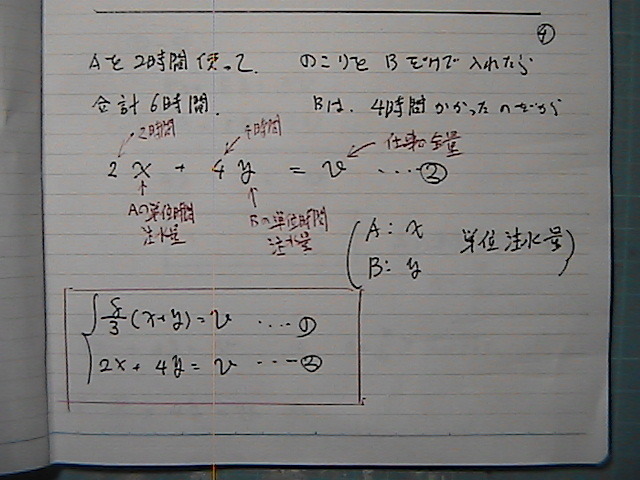 ④
Aを2時間使って、 のこりを Bだけで入れたら
合計6時間。 Bは、4時間かかったのだから
2時間 4時間
2x + 4y = v ← 仕事の全量 ‥‥②
Aの単位時間 Bの単位時間
注水量 注水量
(A: x 単位注水量)
B: y
8/3(x+y)=v ‥‥①
2x+4y=v ‥‥②